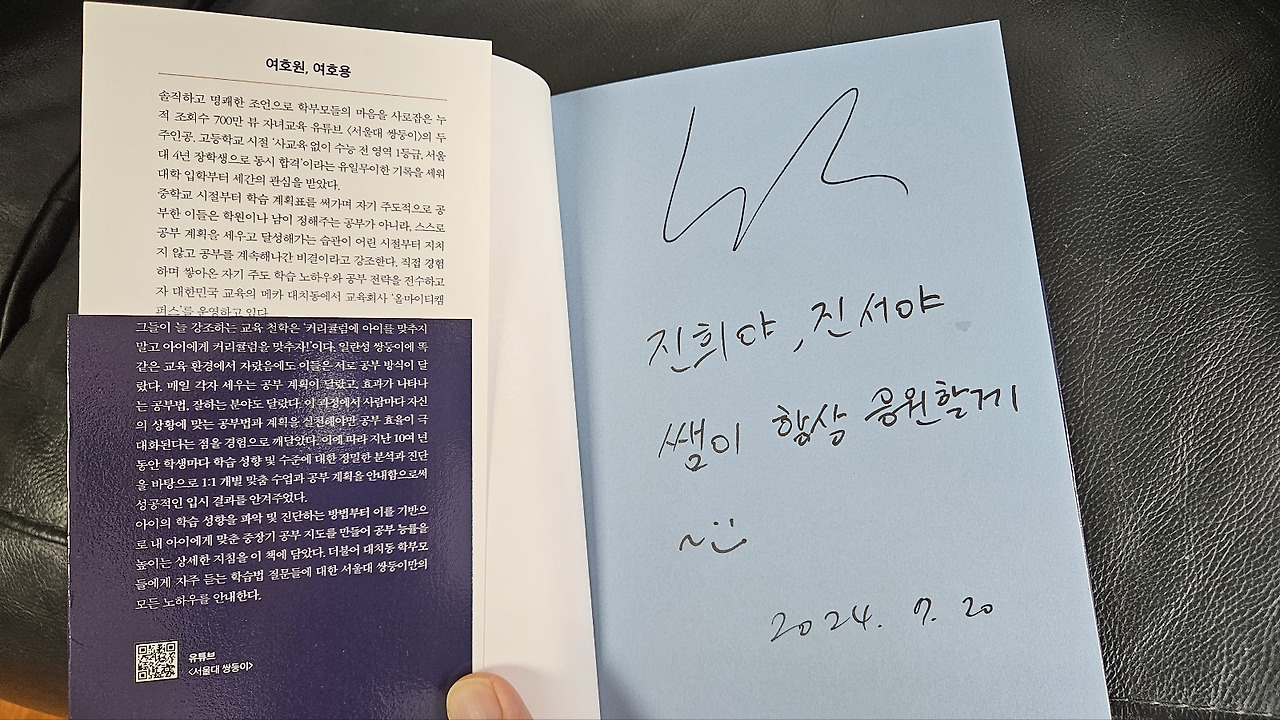 여호원, 여호용
솔직하고 명쾌한 조언으로 학부모들의 마음을 사로잡은 누
적 조회수 700만 뷰 자녀교육 유튜브 〈서울대 쌍둥이〉의 두
주인공. 고등학교 시절 '사교육 없이 수능 전 영역 1등급, 서울
대 4년 장학생으로 동시 합격'이라는 유일무이한 기록을 세워
대학 입학부터 세간의 관심을 받았다.
중학교 시절부터 학습 계획표를 써가며 자기 주도적으로 공
부한 이들은 학원이나 남이 정해주는 공부가 아니라, 스스로
공부 계획을 세우고 달성해가는 습관이 어린 시절부터 지치
지 않고 공부를 계속해나간 비결이라고 강조한다. 직접 경험
하며 쌓아온 자기 주도 학습 노하우와 공부 전략을 전수하고
자 대한민국 교육의 메카 대치동에서 교육회사 '올마이티캠
퍼스'를 운영하고 있다.
그들이 늘 강조하는 교육 철학은 '커리큘럼에 아이를 맞추지
말고 아이에게 커리큘럼을 맞추자!'이다. 일란성 쌍둥이에 똑
같은 교육 환경에서 자랐음에도 이들은 서로 공부 방식이 달
랐다. 매일 각자 세우는 공부 계획이 달랐고, 효과가 나타나
는 공부법, 잘하는 분야도 달랐다. 이 과정에서 사람마다 자신
의 상황에 맞는 공부법과 계획을 실천해야만 공부 효율이 극
대화된다는 점을 경험으로 깨달았다. 이에 따라 지난 10여 년
동안 학생마다 학습 성향 및 수준에 대한 정밀한 분석과 진단
을 바탕으로 1:1 개별 맞춤 수업과 공부 계획을 안내함으로써
성공적인 입시 결과를 안겨주었다.
아이의 학습 성향을 파악 및 진단하는 방법부터 이를 기반으
로 내 아이에게 맞춘 중장기 공부 지도를 만들어 공부 능률을
높이는 상세한 지침을 이 책에 담았다. 더불어 대치동 학부모
들에게 자주 듣는 학습법 질문들에 대한 서울대 쌍둥이만의
모든 노하우를 안내한다.
유튜브
〈서울대 쌍둥이〉
진희야, 진서야
쌤이 항상 응원할게
~:)
2024. 7. 20